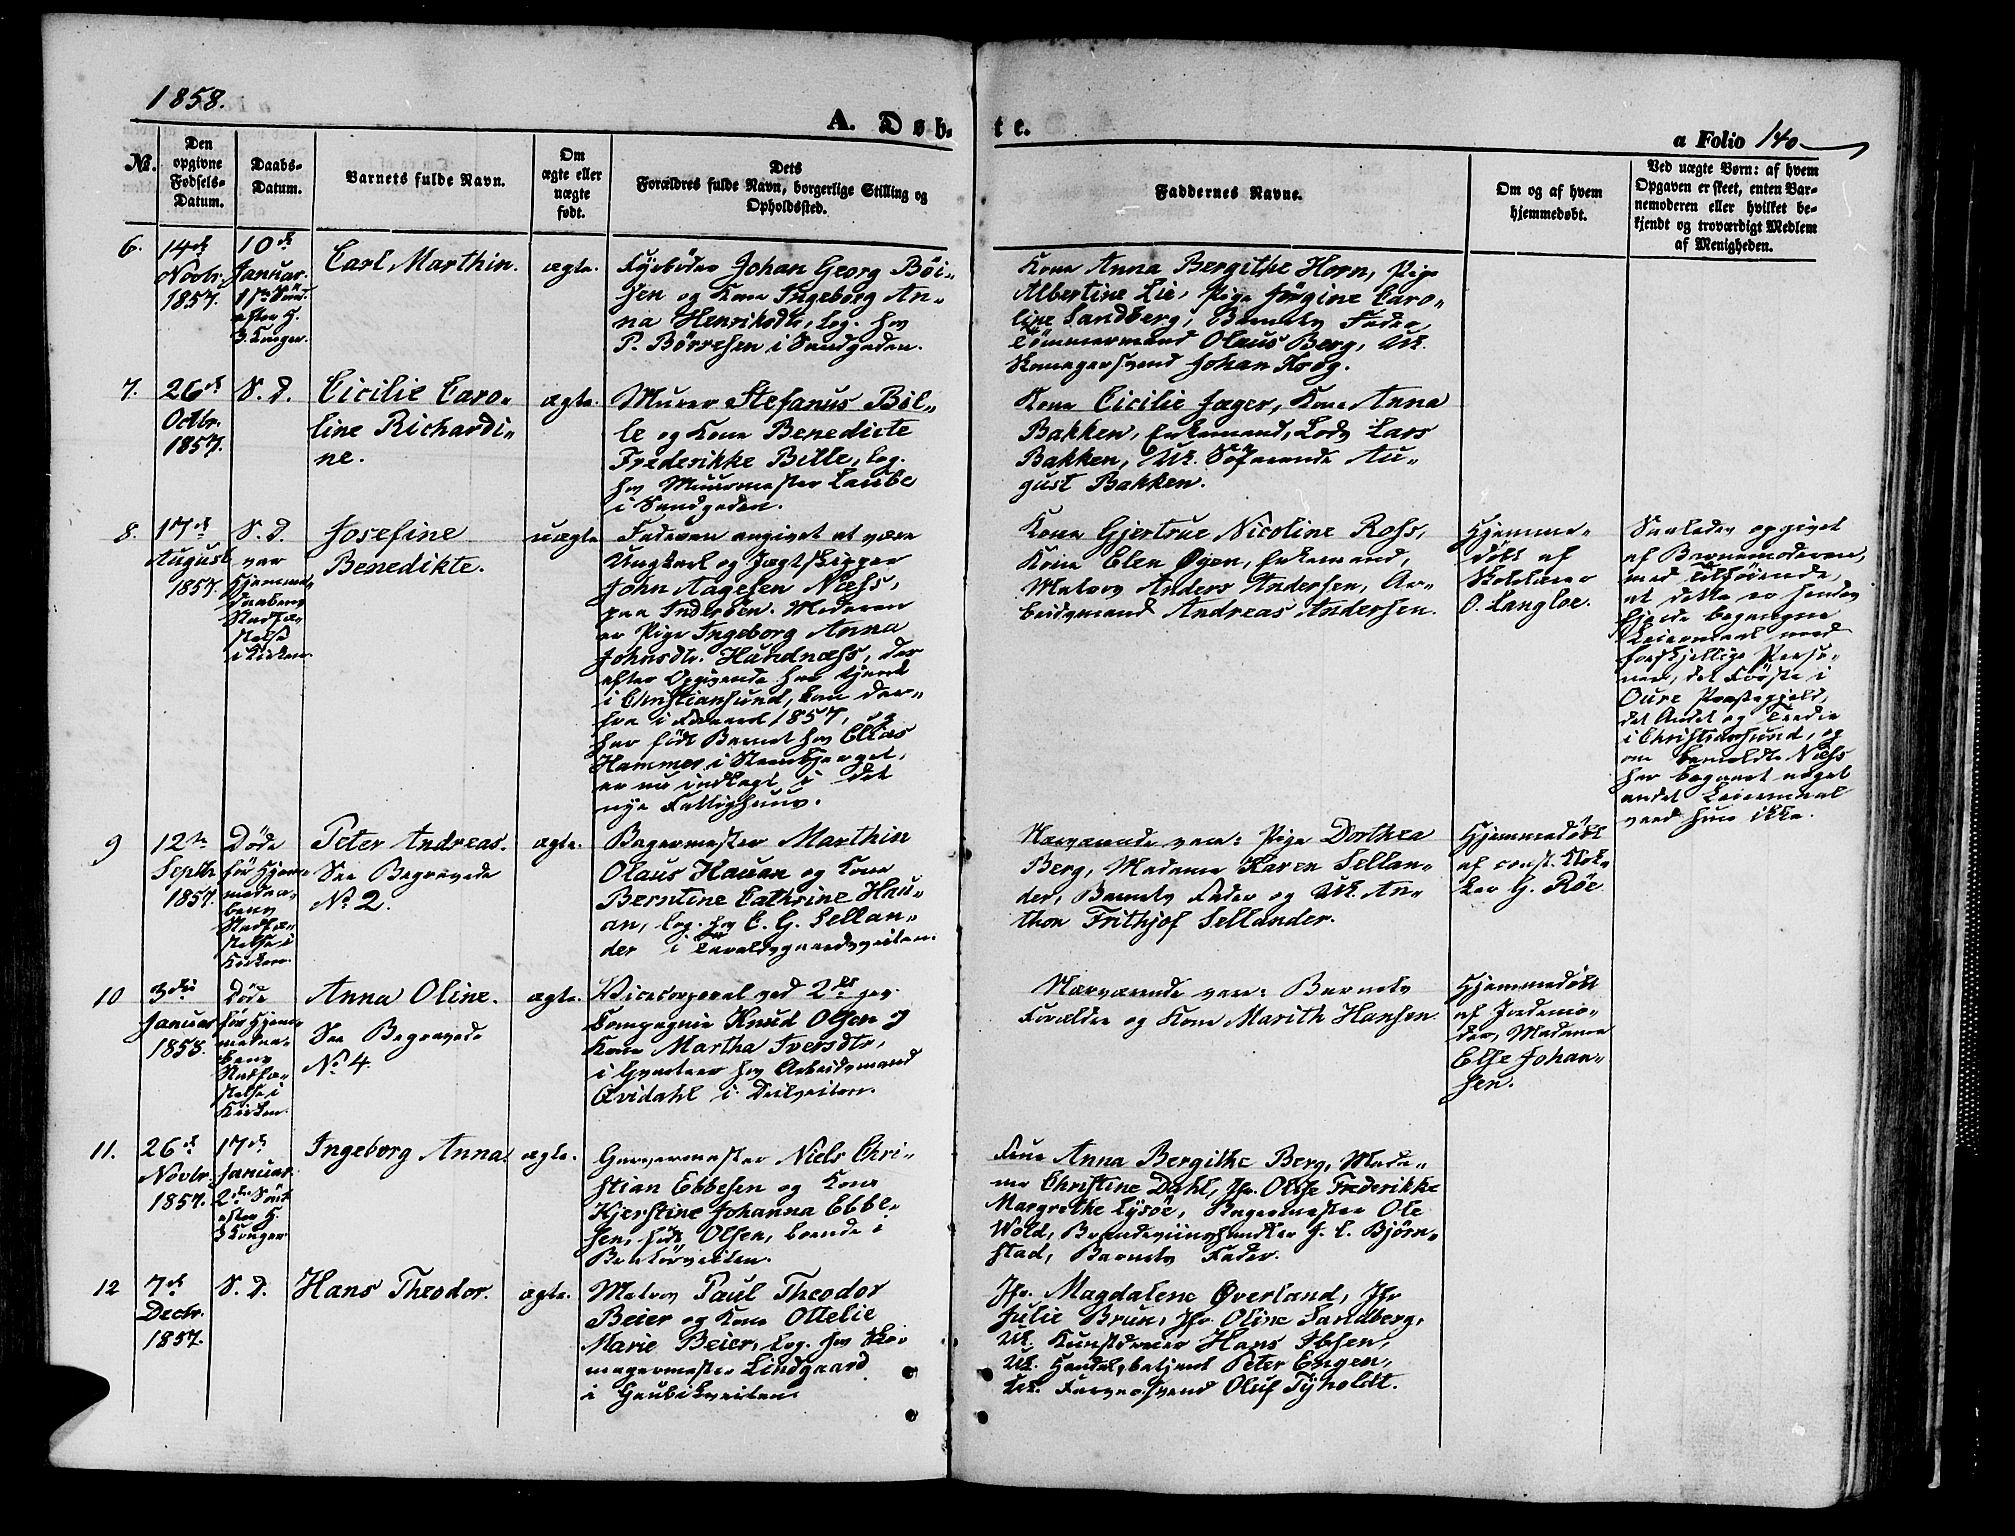 1858.
A. Døb-
te.
a Folio 140
No.
Den
opgivne
Fødsels-
Datum.
Daabs-
Datum.
Barnets fulde Navn.
Om
ægte eller
uægte
født.
Dets
Forældres fulde Navn, borgerlige Stilling og
Opholdssted.
Faddernes Navne.
Om og af hvem
hjemmedøbt.
Ved uægte Børn: af hvem
Opgaven er skeet, enten Bar-
nemoderen eller hvilket be-
kjendt og troværdigt Medlem
af Menigheden.
6.
14de
Novbr.
1857.
10de
Januar.
1ste Sønd.
efter H.
3 Konger.
Carl Marthin.
ægte.
Johan Georg Böi-
sen og Kone Ingeborg An-
na Henriksdtr, log. hos
P. Börresen i Sandgaden.
Kone Anna Bergithe Horn, Pige
Albertine Lie, Pige Jörgine Caro-
line Sandberg, Barnets Fader,
Tömmermand Olaus Berg, Uk.
Skomagersvend Johan Krög.
7.
26de
Octbr.
1857.
S. D.
Cicilie Caro-
line Richardi-
ne.
ægte.
Murer Stefanus Böl-
le og Kone Benedicte
Frederikke Bille, log.
hos Muurmester Laube
i Sandgaden.
Kone Cicilie Jæger, Kone Anna
Bakken, Enkemand, Lods Lars
Bakken, Uk. Söfarende Au-
gust Bakken.
8.
17de
August
1857.
S. D.
var
Hjemme-
daabens
Stadfæ-
stelse
i Kirken.
Josefine
Benedikte.
uægte
Faderen angivet at være
Ungkarl og Jagtskipper
John Aagesen Næss,
paa Inderöen. Moderen
er Pige Ingeborg Anna
Johnsdtr. Hundnæss, der
efter Opgivende har tjent
i Christiansund, kom der-
fra i Foraaret 1857, og
har födt Barnet hos Elias
Hammer i Steenbjerget,
er nu indlagt i det
nye Fattighuus.
Kone Gjertrue Nicoline Ross,
Kone Elen Øyen, Enkemand,
Matros Anders Andersen, Ar-
beidsmand Andreas Andersen.
Hjemme-
döbt af
Skolelærer
O. Langloe.
Saaledes opgivet
af Barnemoderen,
med Tilföiende,
at dette er hendes
fjerde begangne
Leiermaal med
forskjellige Perso-
ner, det Förste i
Oure Præstegjeld,
det Andet og Tredie
i Christiansund, og
om bemeldte Næss
har begaaet noget
andet Leiermaal
veed hun ikke.
9
12te
Septbr
1857.
Döde
för Hjem-
medaa-
bens
Stadfæ-
stelse i
Kirken.
Peter Andreas.
See Begravede
No 2.
ægte.
Bagermester Marthin
Olaus Hauan og Kone
Berntine Cathrine Hau-
an, log. hos C. G. Sellan-
der i Taraldsgaardsveiten.
Nærværende vare: Pige Dorthea
Berg, Madame Karen Sellan-
der, Barnets Fader og Uk. An-
thon Frithjof Sellander.
Hjemmedöbt
af const. Klok-
ker G. Röe
10
3die
Januar
1858.
Döde
för Hjem-
medaa-
bens
Stadfæ-
stelse i
Kirken.
Anna Oline.
See Begravede
No. 4.
ægte.
Vicecorporal ved 2det
Compagnie Knud Olsen &
Kone Martha Iversdtr,
i Qvarteer hos Arbeidsmand
Qvidahl i Deilveiten.
Nærværende vare: Barnets
Forældre og Kone Marith Hansen.
Hjemmedöbt
af Jordemo-
der, Madame
Else Johan-
sen.
11.
26de
Novbr.
1857.
17de
Januar.
2den Sönd.
efter H.
3 Konger
Ingeborg Anna.
ægte.
Garvermester Niels Chri-
stian Ebbesen og Kone
Kjerstine Johanna Ebbe-
sen, född Olsen, boende i
Frue Anna Bergithe Berg, Mada-
me Christine Dahl, Jfr. Olise Frederikke
Margrethe Lysöe, Bagermester Ole
Wold, Brændeviinshandler J. C. Björn-
stad, Barnets Fader.
12
7de
Decbr.
1857.
S. D.
Hans Theodor.
ægte.
Matros Paul Theodor
Beier og Kone Ottelie
Marie Beier, log. hos Sko-
magermester Lindgaard
i Gaubækveiten.
Jfr. Magdalene Øverland, Jfr
Julie Brun, Jfr. Oline Sandberg,
Uk. Kunstdreier Hans Ibsen,
Uk. Handelsbetjent Peter Engen,
Uk. Farversvend Oluf Tyholdt.